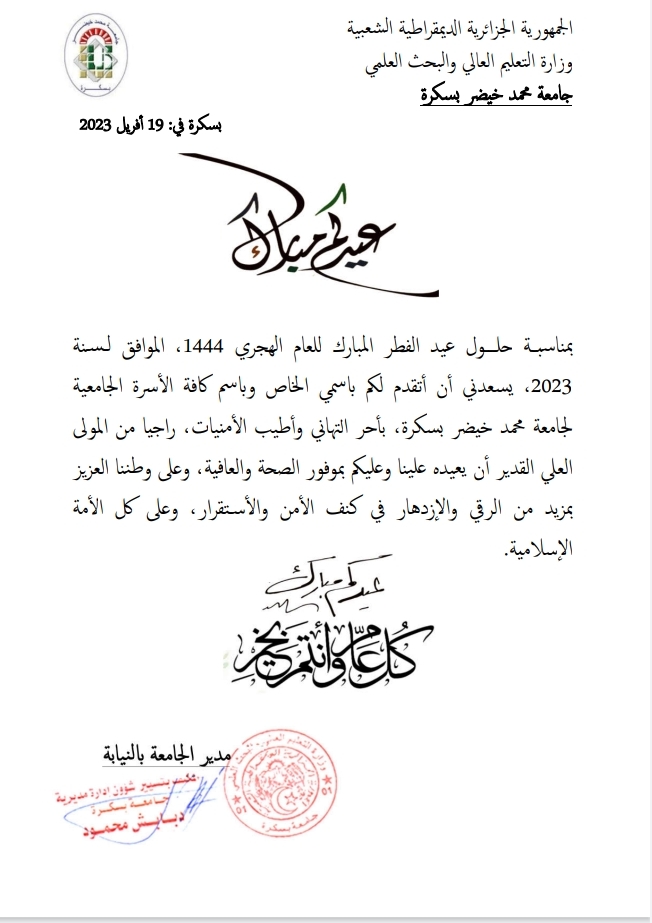 الجمهورية الجزائرية الديمقراطية الشعبية
وزارة التعليم العالي والبحث العلمي
جامعة محمد خيضر بسكرة
بسكرة في: 19 أفريل 2023
عيدكم مبارك
بمناسبـة حلـــول عيد الفطر المبارك للعام الهجري 1444، الموافق لـسـنة
2023، يسعدني أن أتقدم لكم باسمي الخاص وباسم كافة الأسرة الجامعية
لجامعة محمد خيضر بسكرة، بأحر التهاني وأطيب الأمنيات، راجيا من المولى
العلي القدير أن يعيده علينا وعليكم بموفور الصحة والعافية، وعلى وطننا العزيز
بمزيد من الرقي والإزدهار في كنف الأمن والأستقرار، وعلى كل الأمة
الإسلامية.
عيدكم مبارك
كُل عَام وأنتم بخير
مدير الجامعة بالنيابة
مكلف بتسيير شؤون ادارة مديرية
جامعة بسكرة
دبابش محمود
جامعة بسكرة
01
01